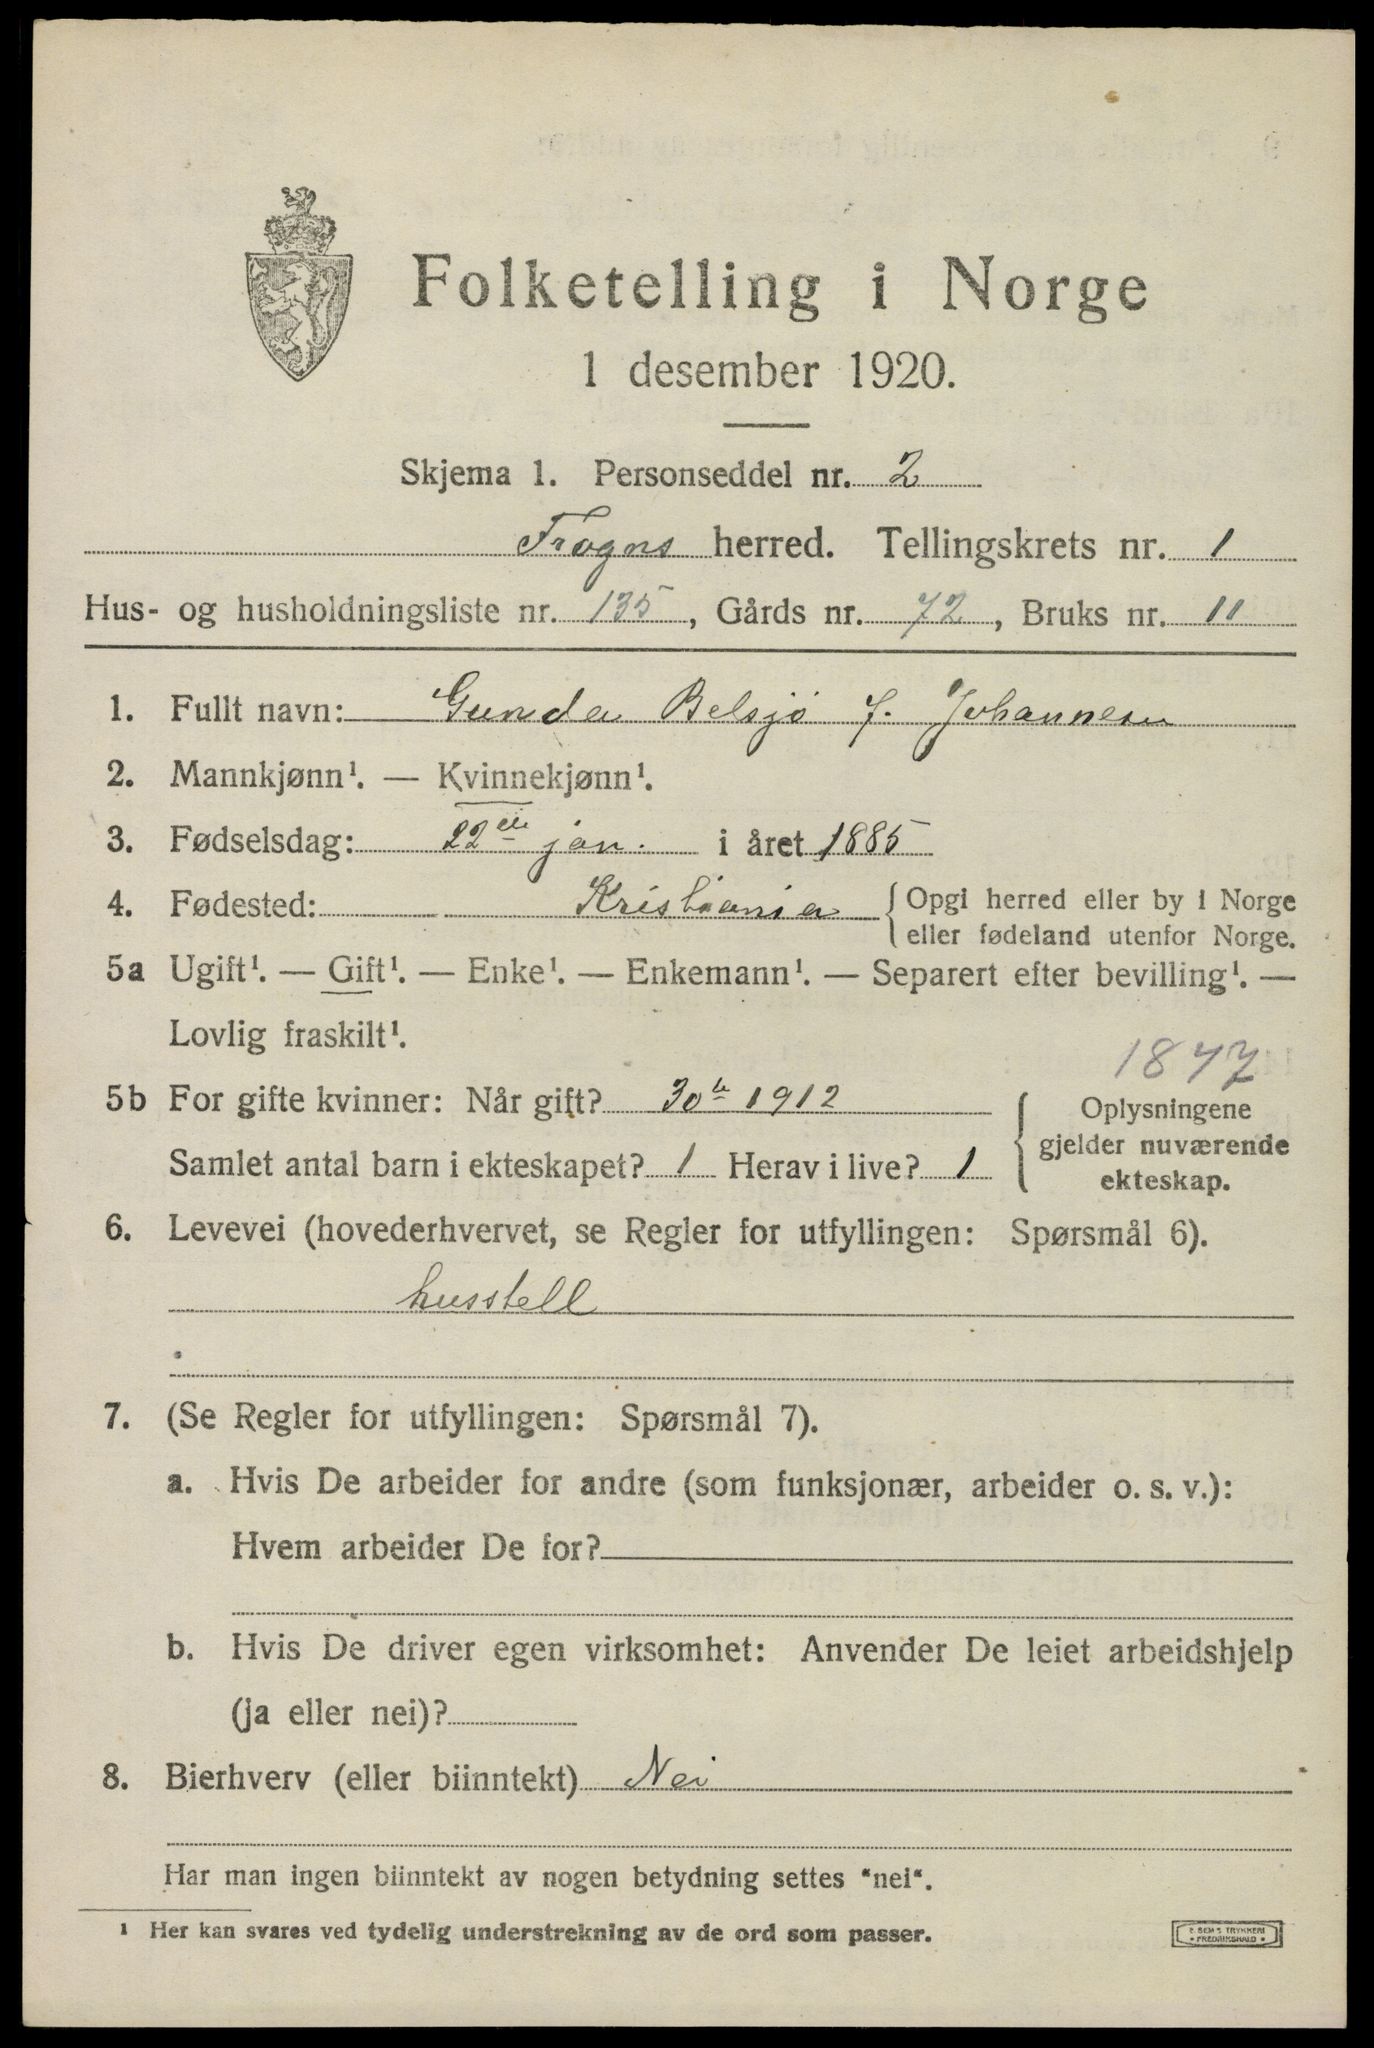 Folketelling i Norge
1 desember 1920.
Skjema 1. Personseddel nr. 2
Frogns herred. Tellingskrets nr. 1
Hus- og husholdningsliste nr. 135, Gårds nr. 72, Bruks nr. 11
1. Fullt navn: Gunda Belsjø f. Johannesen
2. Mannkjønn¹. — Kvinnekjønn¹.
3. Fødselsdag: 22de jan. i året 1885
4. Fødested: Kristiania { Opgi herred eller by i Norge
eller fødeland utenfor Norge.
5a Ugift¹. — Gift¹. — Enke¹. — Enkemann¹. — Separert efter bevilling¹. —
Lovlig fraskilt¹.
1847
5b For gifte kvinner: Når gift? 30te 1912
Samlet antal barn i ekteskapet? 1 Herav i live? 1
{ Oplysningene
gjelder nuværende
ekteskap.
6. Levevei (hovederhvervet, se Regler for utfyllingen: Spørsmål 6).
husstell
7. (Se Regler for utfyllingen: Spørsmål 7).
a. Hvis De arbeider for andre (som funksjonær, arbeider o. s. v.):
Hvem arbeider De for?
b. Hvis De driver egen virksomhet: Anvender De leiet arbeidshjelp
(ja eller nei)?
8. Bierhverv (eller biinntekt) Nei
Har man ingen biinntekt av nogen betydning settes "nei".
¹ Her kan svares ved tydelig understrekning av de ord som passer.
E. SEM'S TRYKKERI
• FREDRIKSHALD •